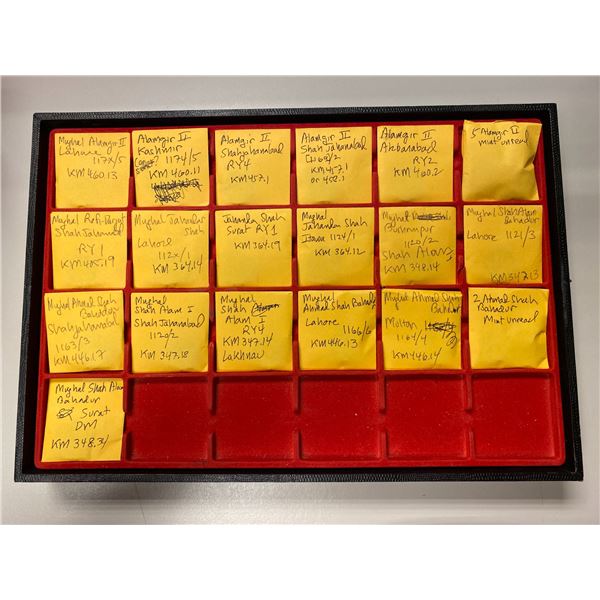 Mughal Alamgir II
Lahore
117x/5
KM460.13
Alamgir II
Kashmir
1174/5
KM 460.11
Alamgir II
Shahjahanabad
RY4
KM457.1
Alamgir II
Shah Jahanabad
1168/2
KM457.1
or 458.1
Alamgir II
Akbarabad
RY2
KM460.2
5 Alamgir II
Mint unread
Mughal Rafi-
Shah Jahanabad
RY1
KM405.19
Mughal Jahandar
Shah
Lahore
112x/1
KM 364.14
Jahandar Shah
Surat RY1
KM364.19
Mughal
Jahandar Shah
Itawa 1124/1
KM 364.12
Mughal
Burhanpur
1120/2
Shah Alam I
KM 348.14
Mughal Shah Alam
Bahadur
Lahore 1121/3
KM347.13
Mughal Ahmad Shah
Bahadur
Shahjahanabad
1163/3
KM446.17
Mughal
Shah Alam I
Shah Jahanabad
1120/2
KM 347.18
Mughal
Shah
Alam I
RY4
KM347.14
Lakhnau
Mughal
Ahmad Shah Bahadur
Lahore
1166/6
KM446.13
Mughal Ahmad Shah
Bahadur
Multan
1164/4
KM446.14
2 Ahmad Shah
Bahadur
Mint unread
Mughal Shah Alam
Bahadur
Surat
DM
KM 348.3